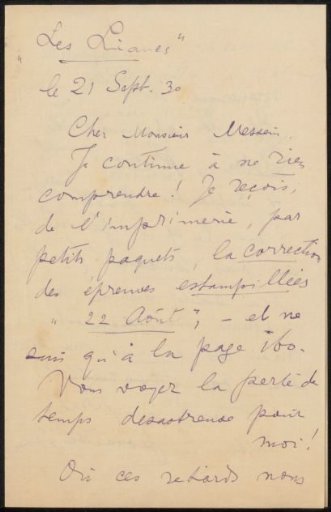 "Les Lianes"
le 21 Sept. 30
Cher Monsieur Messein.
Je continue à ne rien
comprendre! Je reçois,
de l'imprimerie, par
petits paquets, la correction
des épreuves estampillées
"22 Août", - et ne
suis qu'à la page 160.
Vous voyez la perte de
temps désastreuse pour
moi!
Où ces retards nous